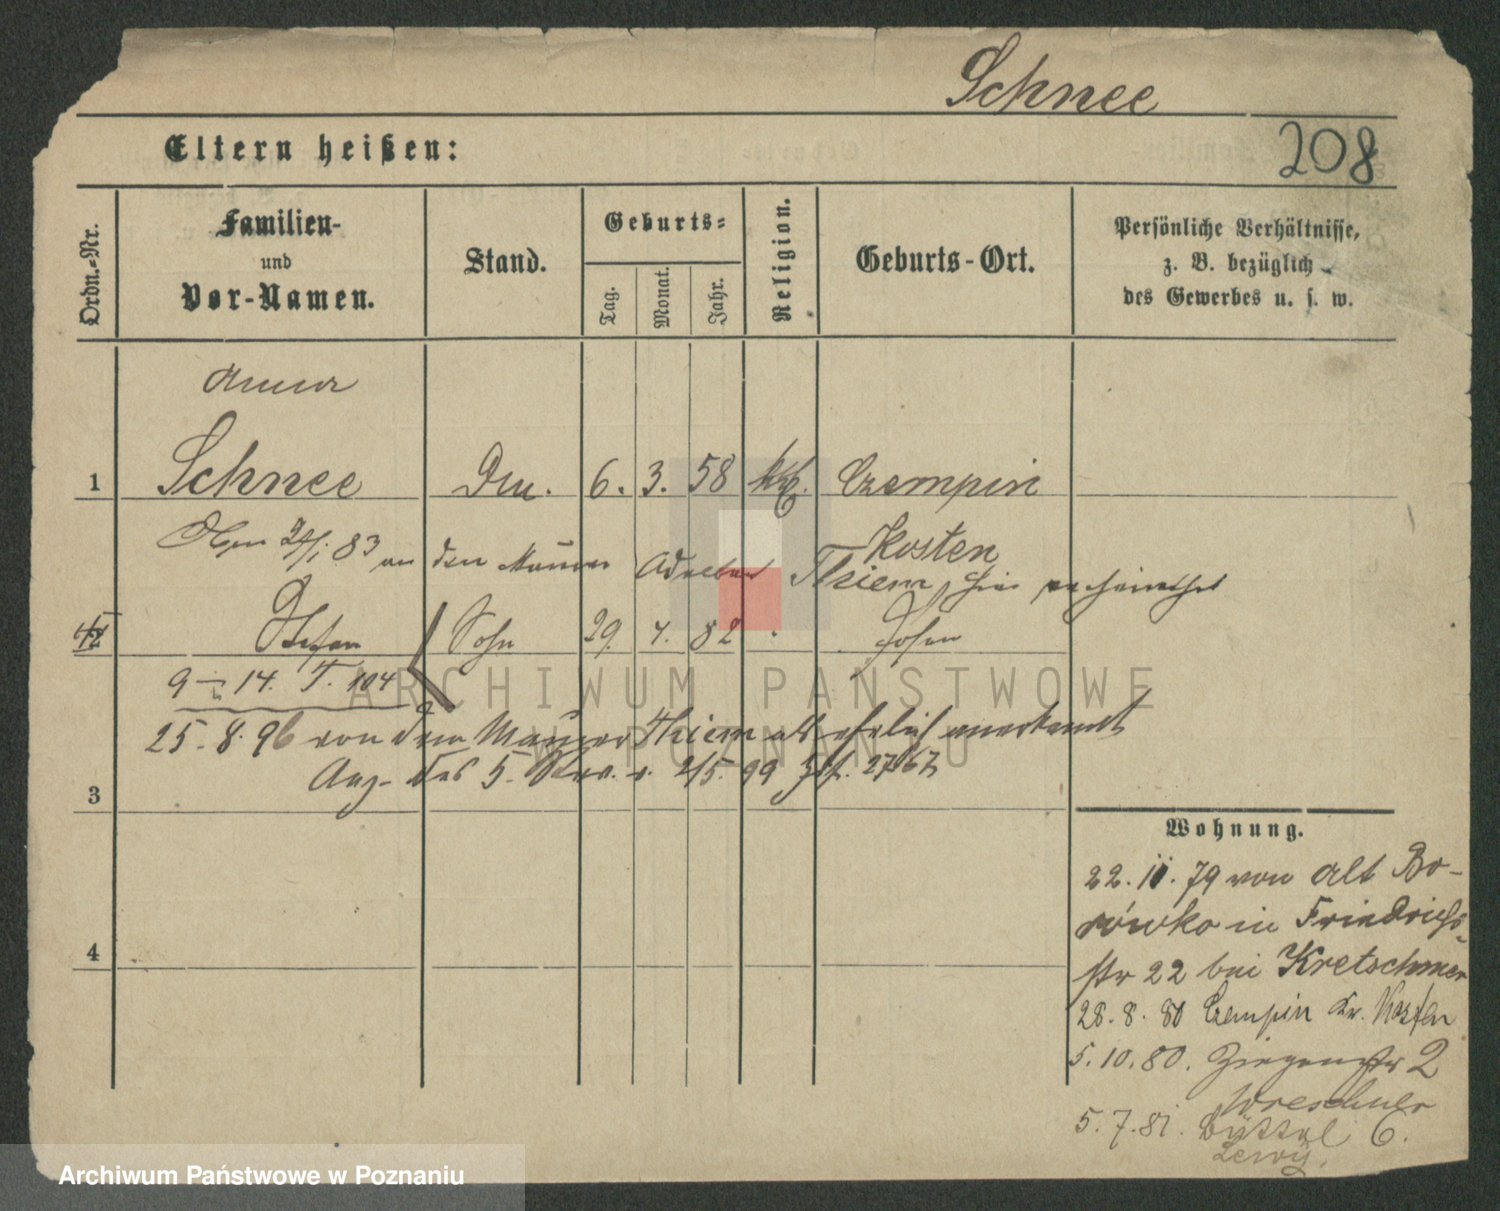 Schnee
208
Eltern heißen:
Ordn.-Nr.
Familien-
und
Vor-Namen.
Stand.
Geburts-
Tag.
Monat.
Jahr.
Religion.
Geburts-Ort.
Persönliche Verhältnisse,
z. B. bezüglich
des Gewerbes u. s. w.
Anna
1 Schnee 6. 3. 58 kth. Czempin
Kosten
83 an den Maurer Thiem, hier verheirathet
2 Stefan Sohn 29. 4. 82 Posen
9 14. T. 104
25.8.96 von dem Maurer Thiem als ehelich anerkannt
Anz. des 5. Rev. v. 2/5. 99
3
4
Wohnung.
22.11.79 von Alt Bo-
rówko in Friedrichs-
str 22 bei Kretschmer
28.8.80 Czempin Kr. Kosten
5.10.80. Ziegenstr 2
Wreschner
5.7.81. Büttel 6.
Lewy.
ARCHIWUM PAŃSTWOWE
W POZNANIU
Archiwum Państwowe w Poznaniu